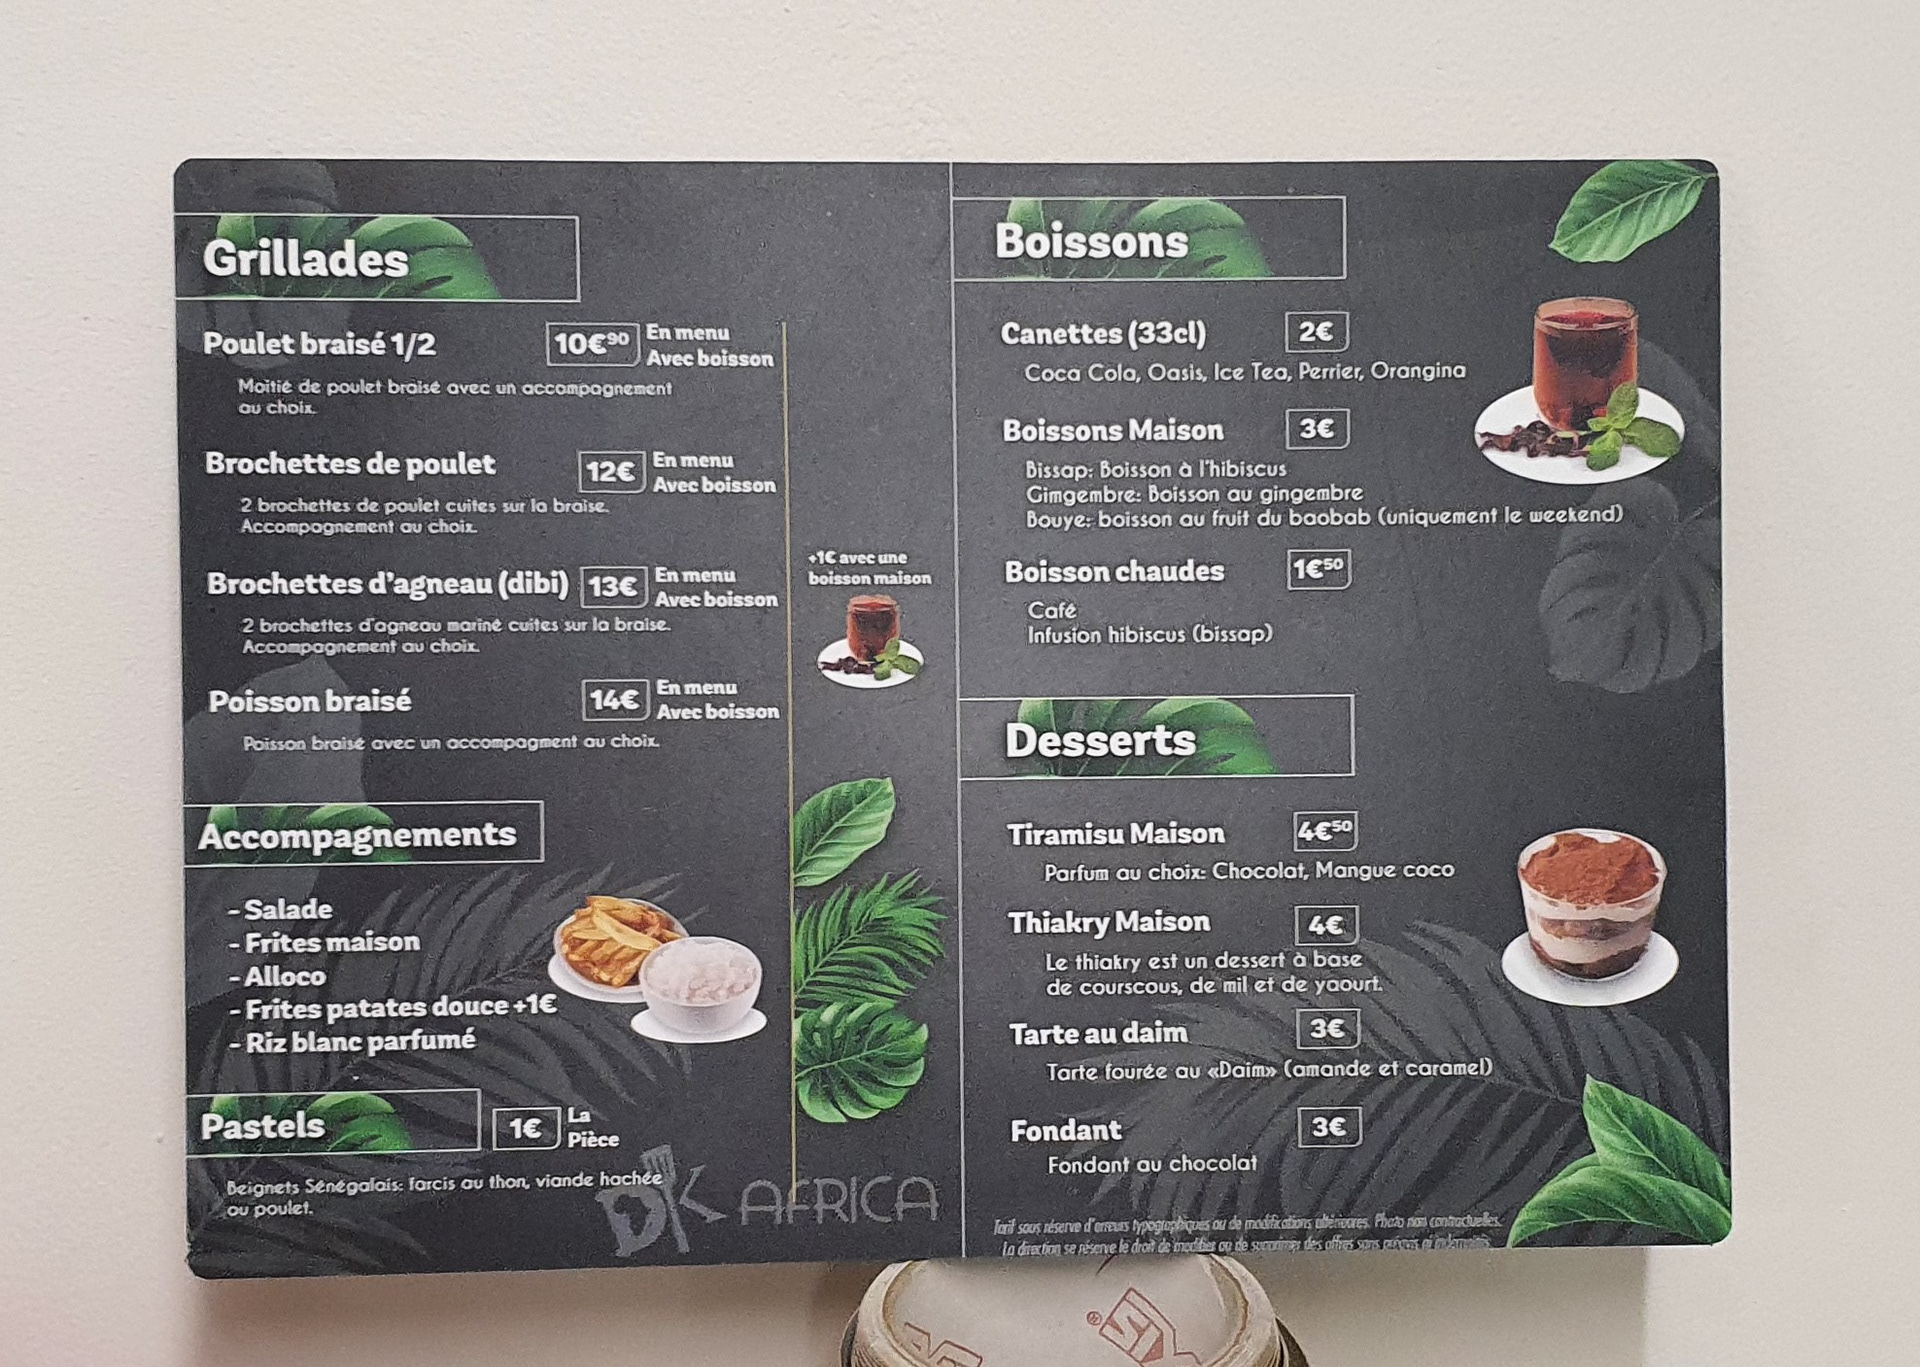 Grillades
Poulet braisé 1/2 10€90 En menu
Avec boisson
Moitié de poulet braisé avec un accompagnement
au choix.
Brochettes de poulet 12€ En menu
Avec boisson
2 brochettes de poulet cuites sur la braise.
Accompagnement au choix.
Brochettes d'agneau (dibi) 13€ En menu
Avec boisson
2 brochettes d'agneau mariné cuites sur la braise.
Accompagnement au choix.
Poisson braisé 14€ En menu
Avec boisson
Poisson braisé avec un accompagment au choix.
+1€ avec une
boisson maison
Accompagnements
- Salade
- Frites maison
- Alloco
- Frites patates douce +1€
- Riz blanc parfumé
Pastels 1€ La
Pièce
Beignets Sénégalais: farcis au thon, viande hachée
ou poulet.
DK AFRICA
Boissons
Canettes (33cl) 2€
Coca Cola, Oasis, Ice Tea, Perrier, Orangina
Boissons Maison 3€
Bissap: Boisson à l'hibiscus
Gimgembre: Boisson au gingembre
Bouye: boisson au fruit du baobab (uniquement le weekend)
Boisson chaudes 1€50
Café
Infusion hibiscus (bissap)
Desserts
Tiramisu Maison 4€50
Parfum au choix: Chocolat, Mangue coco
Thiakry Maison 4€
Le thiakry est un dessert à base
de courscous, de mil et de yaourt.
Tarte au daim 3€
Tarte fourée au «Daim» (amande et caramel)
Fondant 3€
Fondant au chocolat
Tarif sous réserve d'erreurs typographiques ou de modifications ultérieures. Photo non contractuelles.
La direction se réserve le droit de modifier ou de supprimer des offres sans